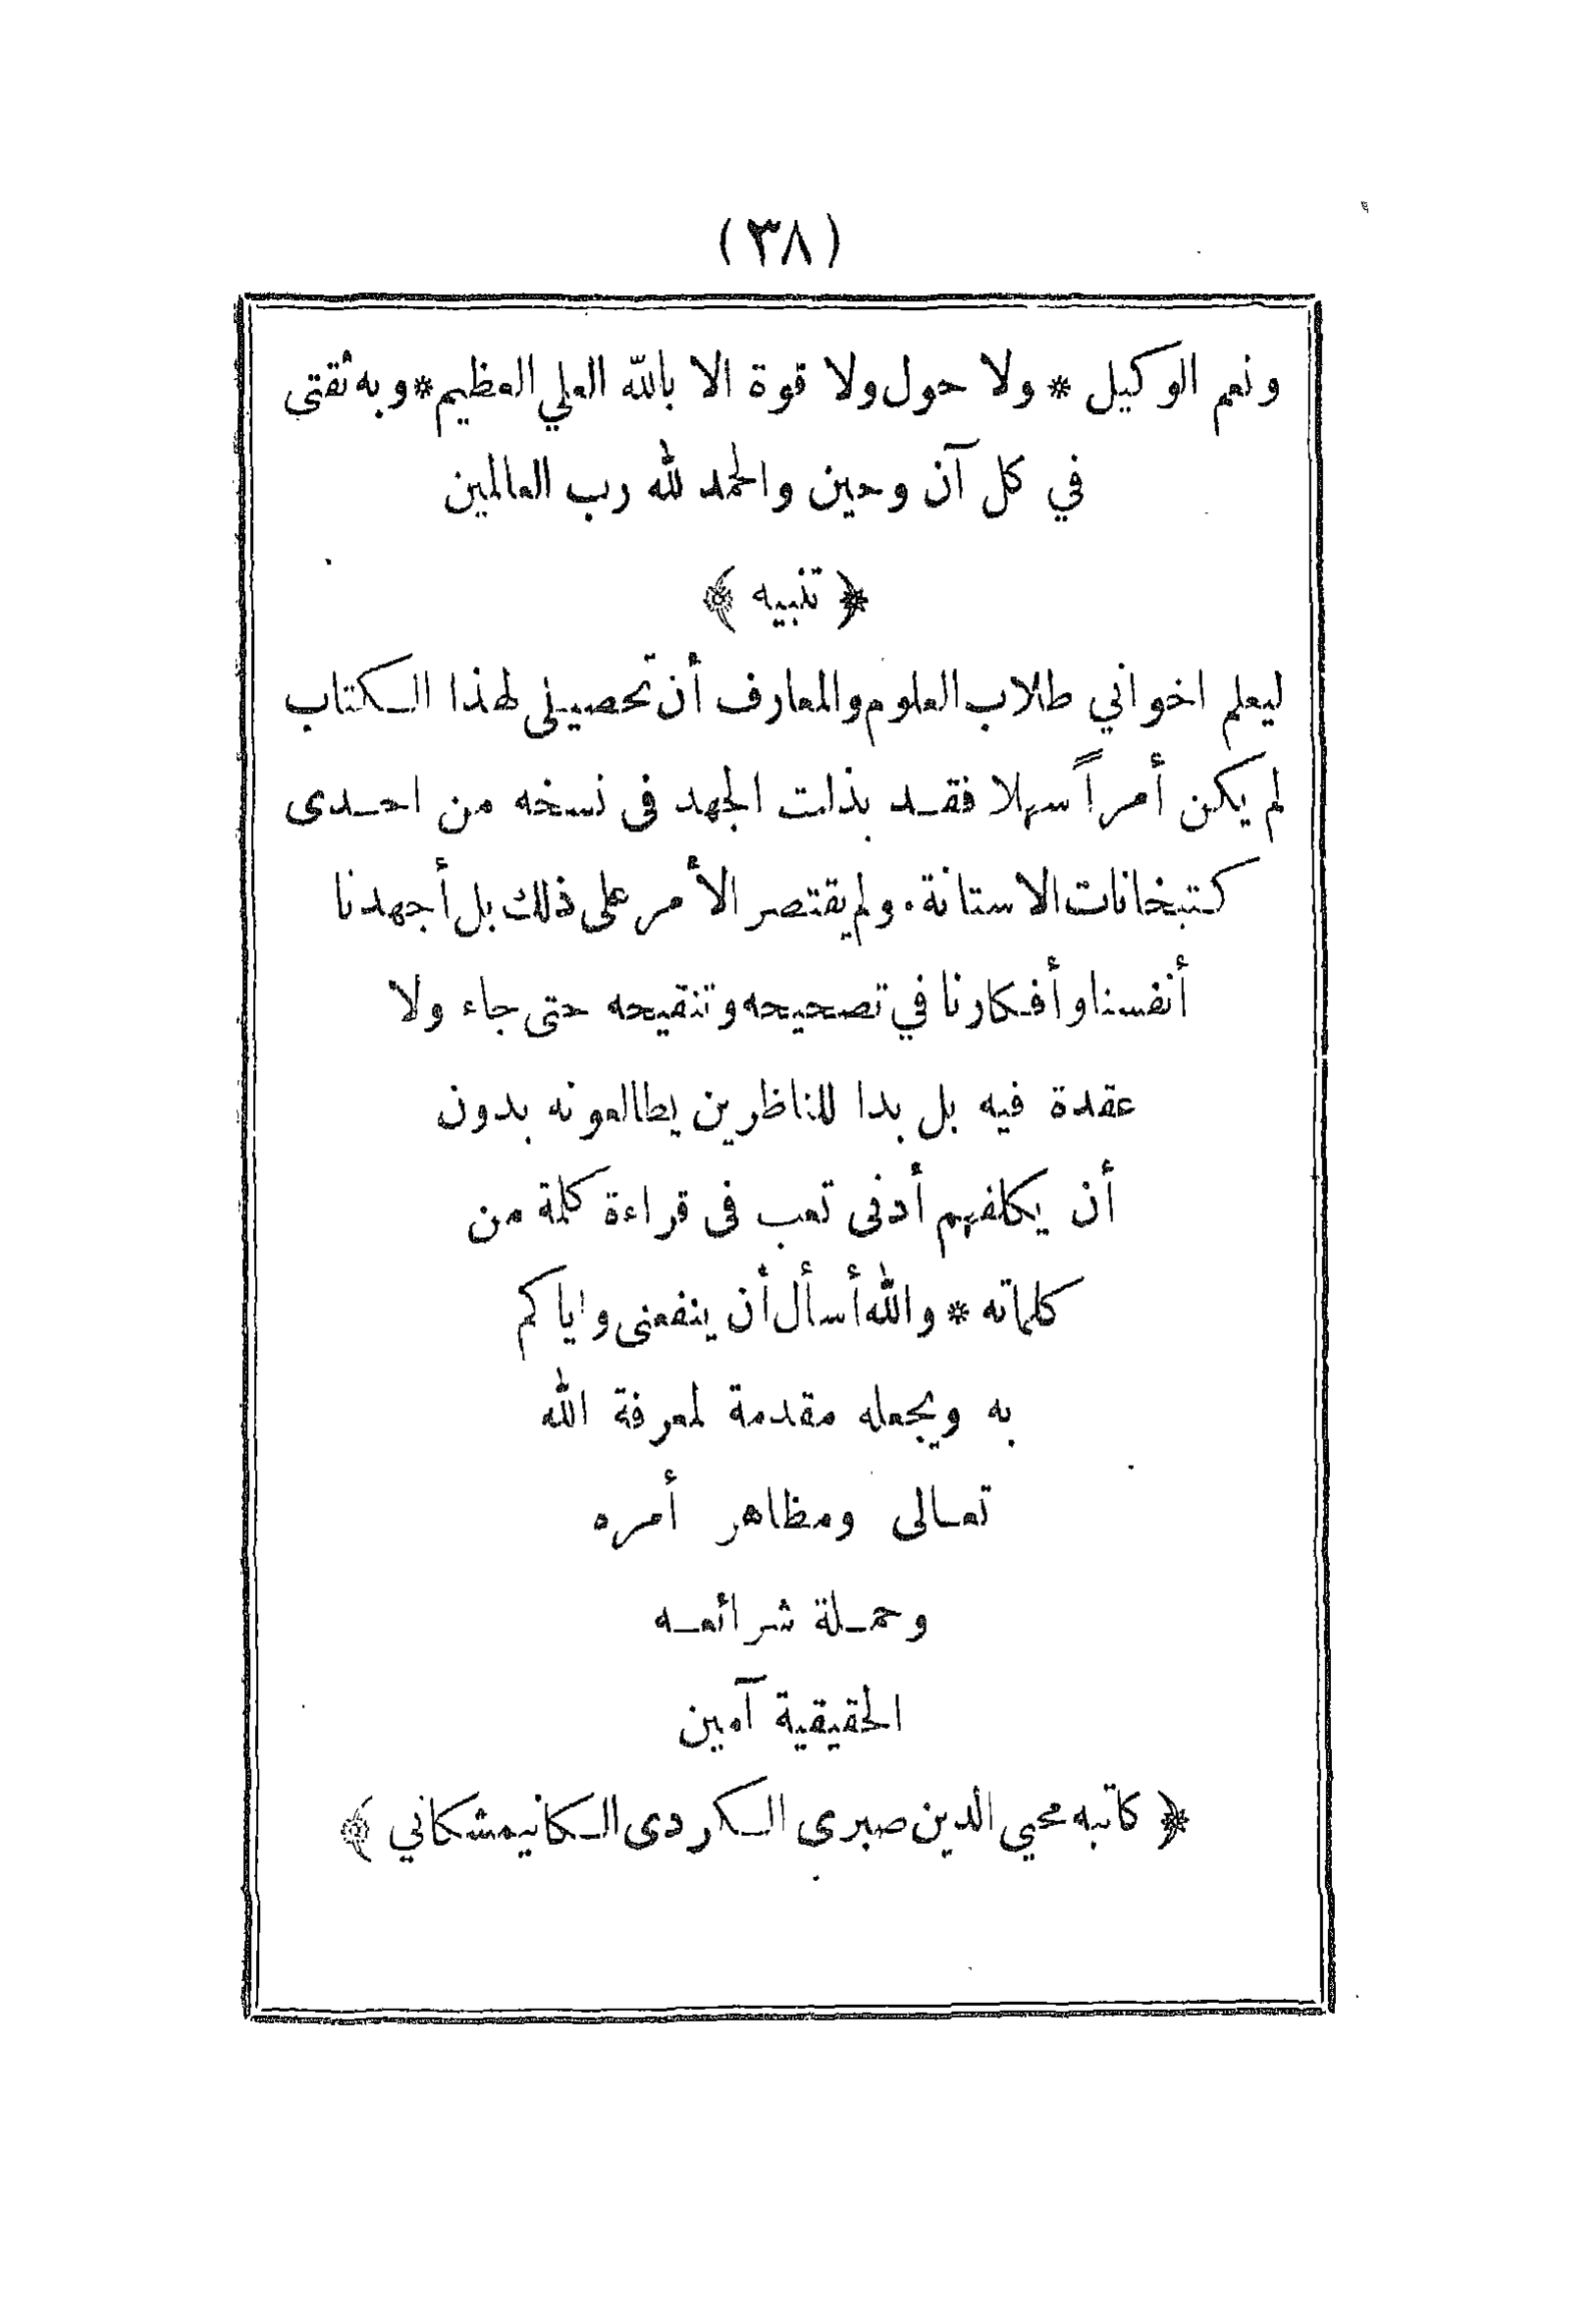 (٣٨)
ونعم الوكيل * ولا حول ولا قوة الا بالله العلي العظيم * وبه ثقتى
في كل آن وحين والحمد لله رب العالمين
﴿ تنبيه ﴾
ليعلم اخواني طلاب العلوم والمعارف أن تحصيلى لهذا الكتاب
لم يكن أمراً سهلا فقد بذلت الجهد فى نسخه من احدى
كتبخانات الاستانة . ولم يقتصر الأمر على ذلك بل أجهدنا
أنفسنا وأفكارنا في تصحيحه وتنقيحه حتى جاء ولا
عقدة فيه بل بدا للناظرين يطالعونه بدون
أن يكلفهم أدنى تعب فى قراءة كلمة من
كلماته * والله أسأل أن ينفعنى واياكم
به ويجعله مقدمة لمعرفة الله
تعالى ومظاهر أمره
وحملة شرائعه
الحقيقية آمين
﴿ كاتبه محيي الدين صبرى الكردى الكانيمشكاني ﴾